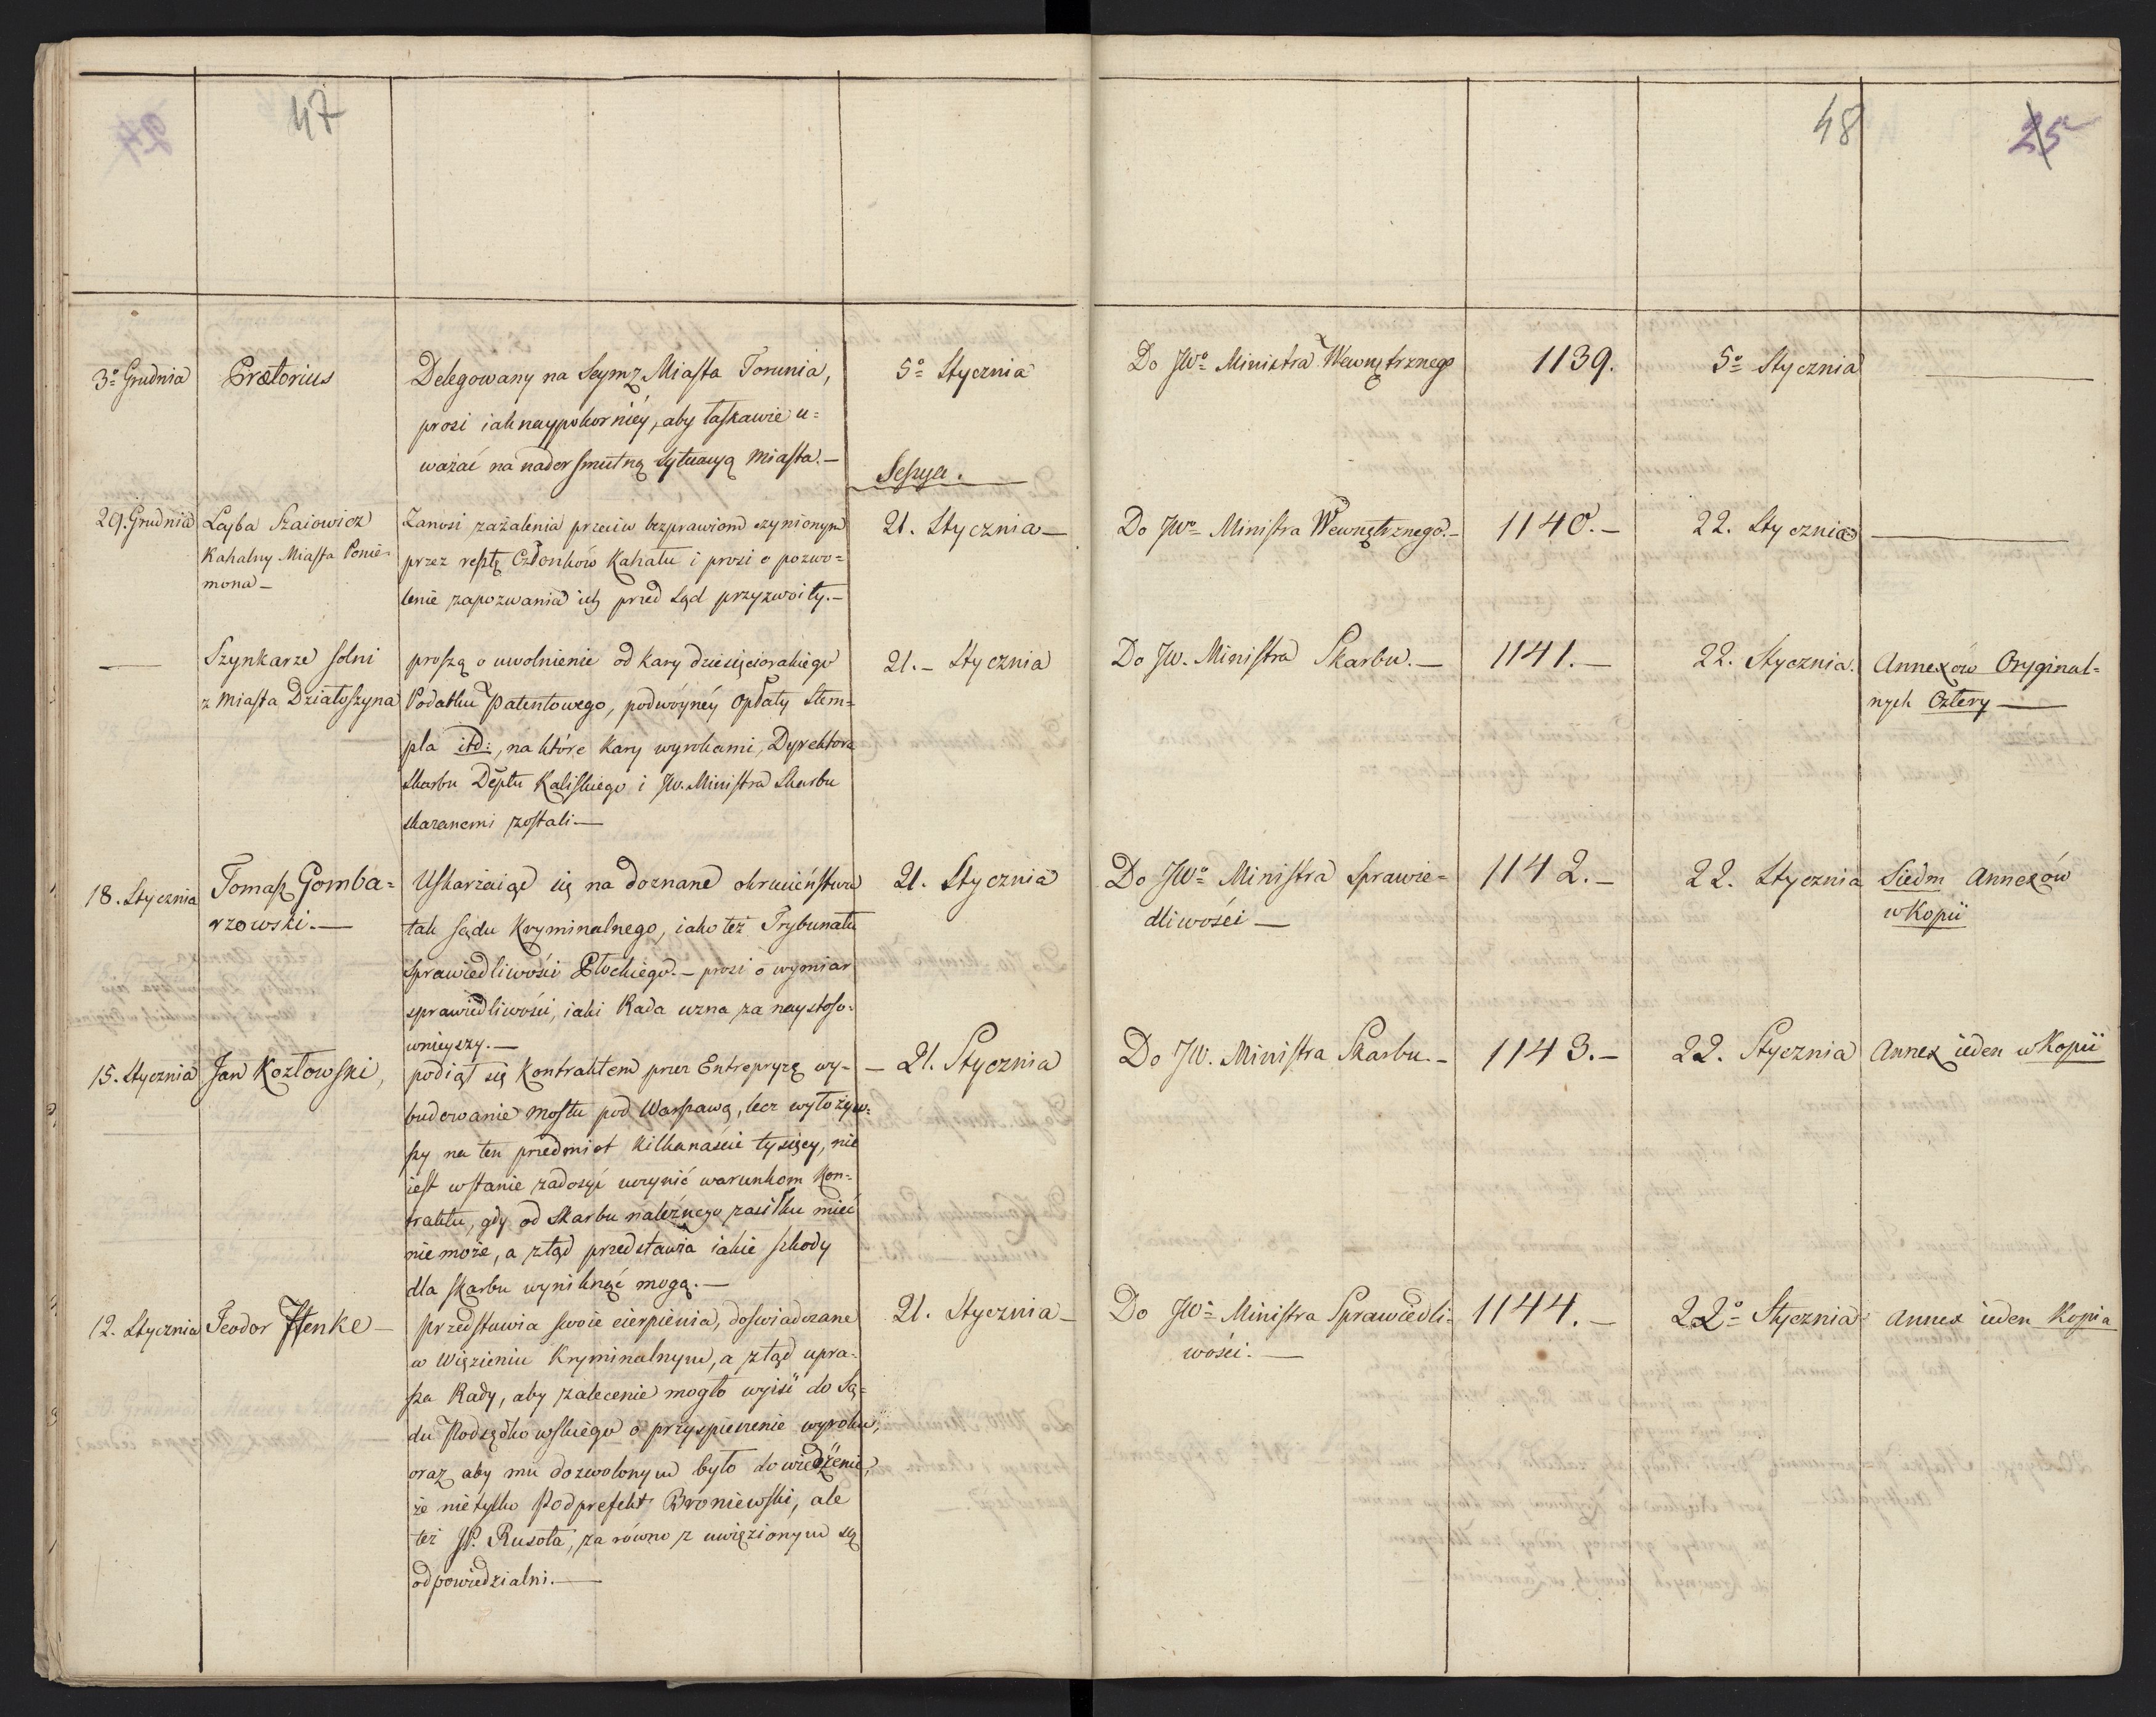 24
47
48
25
3º Grudnia
Prætorius
Delegowany na Seym z Miasta Torunia,
prosi iaknaypokorniéy, aby łaskawie u-
ważać na nader smutną sytuacyą Miasta.—
5º Stycznia
Do JWº Ministra Wewnętrznego
1139.
5º Stycznia
Sessya.
29. Grudnia
Leyba Szaiowicz
Kahalny Miasta Ponie-
mona—
Zanosi zażalenia przeciw bezprawiom czynionym
przez resztę Członków Kahału i prosi o pozwo-
lenie zapozwania ich przed Sąd przyzwoity.—
21. Stycznia—
Do JWº Ministra Wewnętrznego.—
1140.—
22. Stycznia
—
Szynkarze solni
z Miasta Działoszyna
proszą o uwolnienie od kary dziesięciorakiego
Podatku Patentowego, podwóynéy Opłaty Stem-
pla itd:, na które kary wyrokami, Dyrektora
Skarbu Deptu Kaliskiego i JW. Ministra Skarbu
skazanemi zostali—
21.— Stycznia
Do JW. Ministra Skarbu.—
1141.—
22. Stycznia.
Annexów Oryginal-
nych Cztery—
18. Stycznia
Tomasz Gomba-
rzowski.—
Uskarżaiąc się na doznane okrucieństwa
tak Sądu Kryminalnego, iako też Trybunału
Sprawiedliwości Płockiego.— prosi o wymiar
sprawiedliwości, iaki Rada uzna za naystoso-
wnieyszy.—
21. Stycznia
Do JWº Ministra Sprawie-
dliwości—
1142.—
22. Stycznia
Siedm Annexów
w Kopii
15. Stycznia
Jan Kozłowski,
podiął się Kontraktem przez Entrepryzę wy-
budowanie Mostu pod Warszawą, lecz wyłożyw-
szy na ten przedmiot kilkanaście tysięcy, nie
iest w stanie zadosyć uczynić warunkom Kon-
traktu, gdy od Skarbu należnego zasiłku mieć
nie może, a ztąd przedstawia iakie szkody
dla skarbu wyniknąć mogą.—
— 21. Stycznia
Do JW. Ministra Skarbu.—
1143.—
22. Stycznia
Annex ieden w Kopii
12. Stycznia
Teodor
przedstawia swoie cierpienia, doświadczane
w Więzieniu Kryminalnym, a ztąd upra-
sza Rady, aby zalecenie mogło wyiść do Są-
du Podsędkowskiego o przyspieszenie wyroku,
oraz aby mu dozwolonym było dowiedzenie,
że nietylko Podprefekt Broniewski, ale
też JP. Rusota, za równo z uwięzionym są
odpowiedzialni.—
21. Stycznia—
Do JWº Ministra Sprawiedli-
wości.—
1144.—
22º Stycznia
Annex ieden Kopia